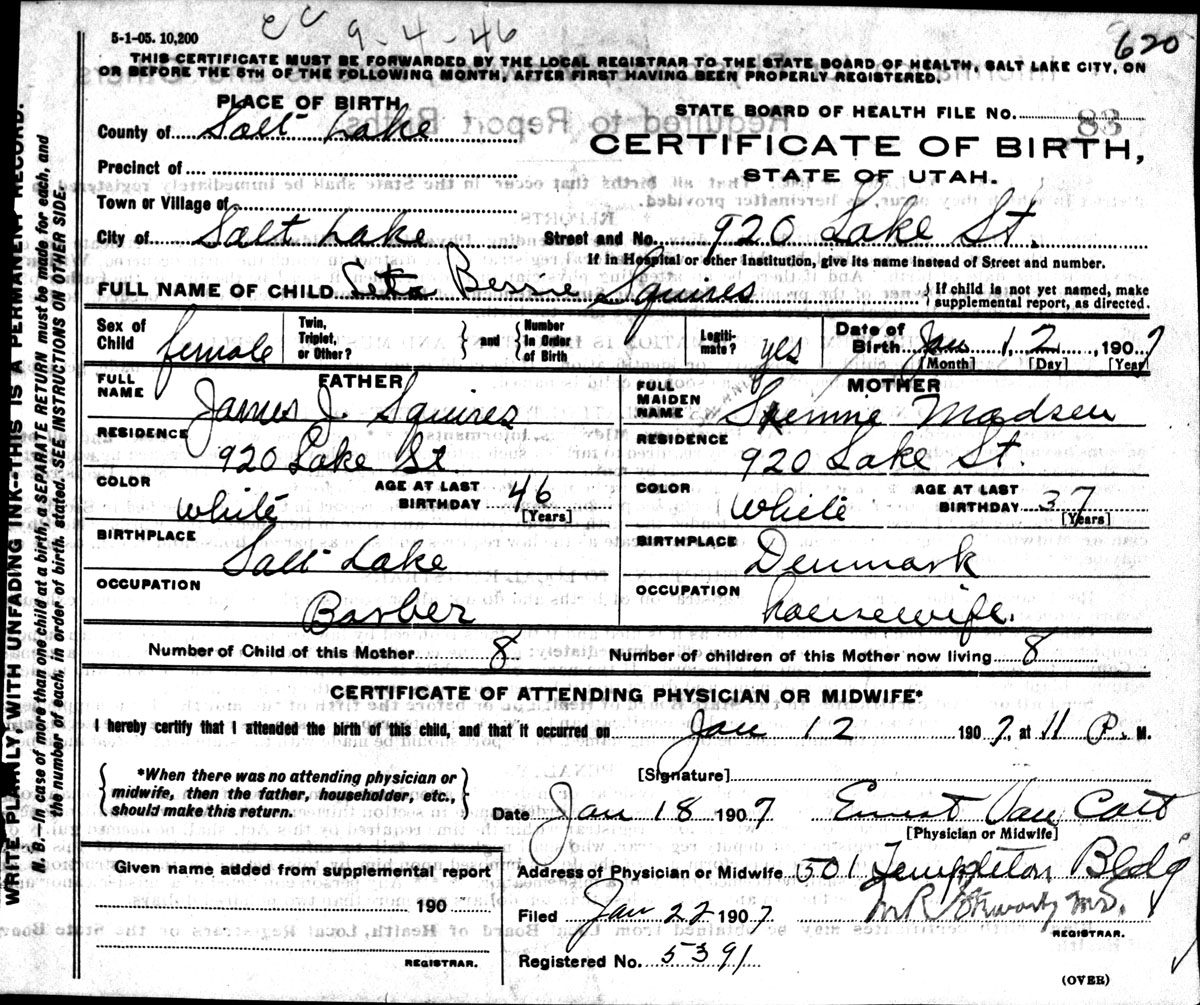 5-1-05. 10,200
9-4-46
620
THIS CERTIFICATE MUST BE FORWARDED BY THE LOCAL REGISTRAR TO THE STATE BOARD OF HEALTH, SALT LAKE CITY, ON
OR BEFORE THE 5TH OF THE FOLLOWING MONTH, AFTER FIRST HAVING BEEN PROPERLY REGISTERED.
PLACE OF BIRTH
County of Salt Lake
Precinct of
Town or Village of
City of Salt Lake
STATE BOARD OF HEALTH FILE NO. 83
CERTIFICATE OF BIRTH,
STATE OF UTAH.
Street and No. 920 Lake St.
If in Hospital or other Institution, give its name instead of Street and number.
FULL NAME OF CHILD Bessie Squires
{ If child is not yet named, make
supplemental report, as directed.
Sex of Child female
Twin, Triplet, or Other? } and { Number In Order of Birth
Legitimate? yes
Date of Birth Jan 12, 1907
[Month] [Day] [Year]
FATHER
FULL NAME James J. Squires
RESIDENCE 920 Lake St
COLOR White
AGE AT LAST BIRTHDAY 46
[Years]
BIRTHPLACE Salt Lake
OCCUPATION Barber
MOTHER
FULL MAIDEN NAME Madsen
RESIDENCE 920 Lake St.
COLOR White
AGE AT LAST BIRTHDAY 37
[Years]
BIRTHPLACE Denmark
OCCUPATION housewife.
Number of Child of this Mother 8
Number of children of this Mother now living 8
CERTIFICATE OF ATTENDING PHYSICIAN OR MIDWIFE*
I hereby certify that I attended the birth of this child, and that it occurred on Jan 12 1907, at 11 P. M.
{ *When there was no attending physician or
midwife, then the father, householder, etc.,
should make this return. }
[Signature]
Date Jan 18 1907 Ernest Van Cott
[Physician or Midwife]
Address of Physician or Midwife 501 Templeton Bldg
Filed Jan 22 1907 M.D.
REGISTRAR.
Registered No. 5391
Given name added from supplemental report
190
REGISTRAR.
(OVER)
WRITE PLAINLY, WITH UNFADING INK--THIS IS A PERMANENT RECORD.
N. B.--In case of more than one child at a birth, a SEPARATE RETURN must be made for each, and
the number of each, in order of birth, stated. SEE INSTRUCTIONS ON OTHER SIDE.